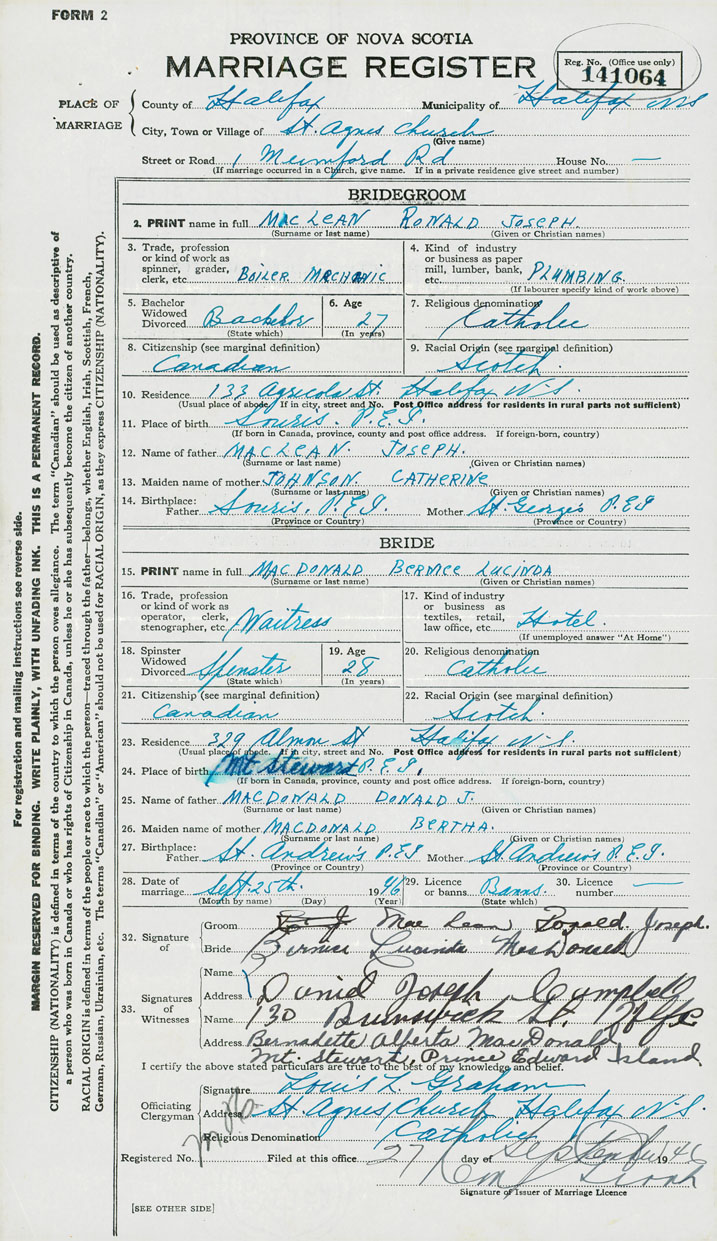 FORM 2
PROVINCE OF NOVA SCOTIA
MARRIAGE REGISTER
Reg. No. (Office use only)
141064
PLACE OF MARRIAGE
County of Halifax Municipality of Halifax NS
City, Town or Village of St. Agnes Church
(Give name)
Street or Road 1 Mumford Rd House No. —
(If marriage occurred in a Church, give name. If in a private residence give street and number)
BRIDEGROOM
2. PRINT name in full MACLEAN RONALD JOSEPH.
(Surname or last name) (Given or Christian names)
3. Trade, profession or kind of work as spinner, grader, clerk, etc. BOILER MECHANIC
4. Kind of industry or business as paper mill, lumber, bank, etc. PLUMBING
(If labourer specify kind of work above)
5. Bachelor Widowed Divorced Bachelor
(State which)
6. Age 27
(In years)
7. Religious denomination Catholic
8. Citizenship (see marginal definition) Canadian
9. Racial Origin (see marginal definition) Scotch
10. Residence 133 Agricola St. Halifax N.S.
(Usual place of abode. If in city, street and No. Post Office address for residents in rural parts not sufficient)
11. Place of birth Souris. P.E.I.
(If born in Canada, province, county and post office address. If foreign-born, country)
12. Name of father MACLEAN. JOSEPH.
(Surname or last name) (Given or Christian names)
13. Maiden name of mother JOHNSON. CATHERINE
(Surname or last name) (Given or Christian names)
14. Birthplace: Father Souris, P.E.I. Mother St. Georges P.E.I
(Province or Country) (Province or Country)
BRIDE
15. PRINT name in full MACDONALD BERNICE LUCINDA
(Surname or last name) (Given or Christian names)
16. Trade, profession or kind of work as operator, clerk, stenographer, etc. Waitress
17. Kind of industry or business as textiles, retail, law office, etc. Hotel.
(If unemployed answer "At Home")
18. Spinster Widowed Divorced Spinster
(State which)
19. Age 28
(In years)
20. Religious denomination Catholic
21. Citizenship (see marginal definition) Canadian
22. Racial Origin (see marginal definition) Scotch.
23. Residence 329 Almon St Halifax N.S.
(Usual place of abode. If in city, street and No. Post Office address for residents in rural parts not sufficient)
24. Place of birth Mt Stewart P.E.I.
(If born in Canada, province, county and post office address. If foreign-born, country)
25. Name of father MACDONALD DONALD J.
(Surname or last name) (Given or Christian names)
26. Maiden name of mother MACDONALD BERTHA.
(Surname or last name) (Given or Christian names)
27. Birthplace: Father St. Andrew's P.E.I Mother St. Andrew's P.E.I.
(Province or Country) (Province or Country)
28. Date of marriage Sept. 25th. 1946
(Month by name) (Day) (Year)
29. Licence or banns. Banns.
(State which)
30. Licence number —
32. Signature of
Groom Mac Lean Ronald Joseph.
Bride Bernice Lucinda MacDonald
33. Signatures of Witnesses
Name Daniel Joseph Campbell
Address 130 Brunswick St. Hlfx
Name Bernadette Alberta MacDonald
Address Mt. Stewart, Prince Edward Island
I certify the above stated particulars are true to the best of my knowledge and belief.
Officiating Clergyman
Signature Louis L. Graham
Address St. Agnes Church Halifax N.S.
Religious Denomination Catholic
Registered No. Filed at this office 27 day of September 1946
Signature of Issuer of Marriage Licence
[SEE OTHER SIDE]
For registration and mailing instructions see reverse side.
MARGIN RESERVED FOR BINDING. WRITE PLAINLY, WITH UNFADING INK. THIS IS A PERMANENT RECORD.
CITIZENSHIP (NATIONALITY) is defined in terms of the country to which the person owes allegiance. The term "Canadian" should be used as descriptive of
a person who was born in Canada or who has rights of Citizenship in Canada, unless he or she has subsequently become the citizen of another country.
RACIAL ORIGIN is defined in terms of the people or race to which the person—traced through the father—belongs, whether English, Irish, Scottish, French,
German, Russian, Ukrainian, etc. The terms "Canadian" or "American" should not be used for RACIAL ORIGIN, as they express CITIZENSHIP (NATIONALITY).